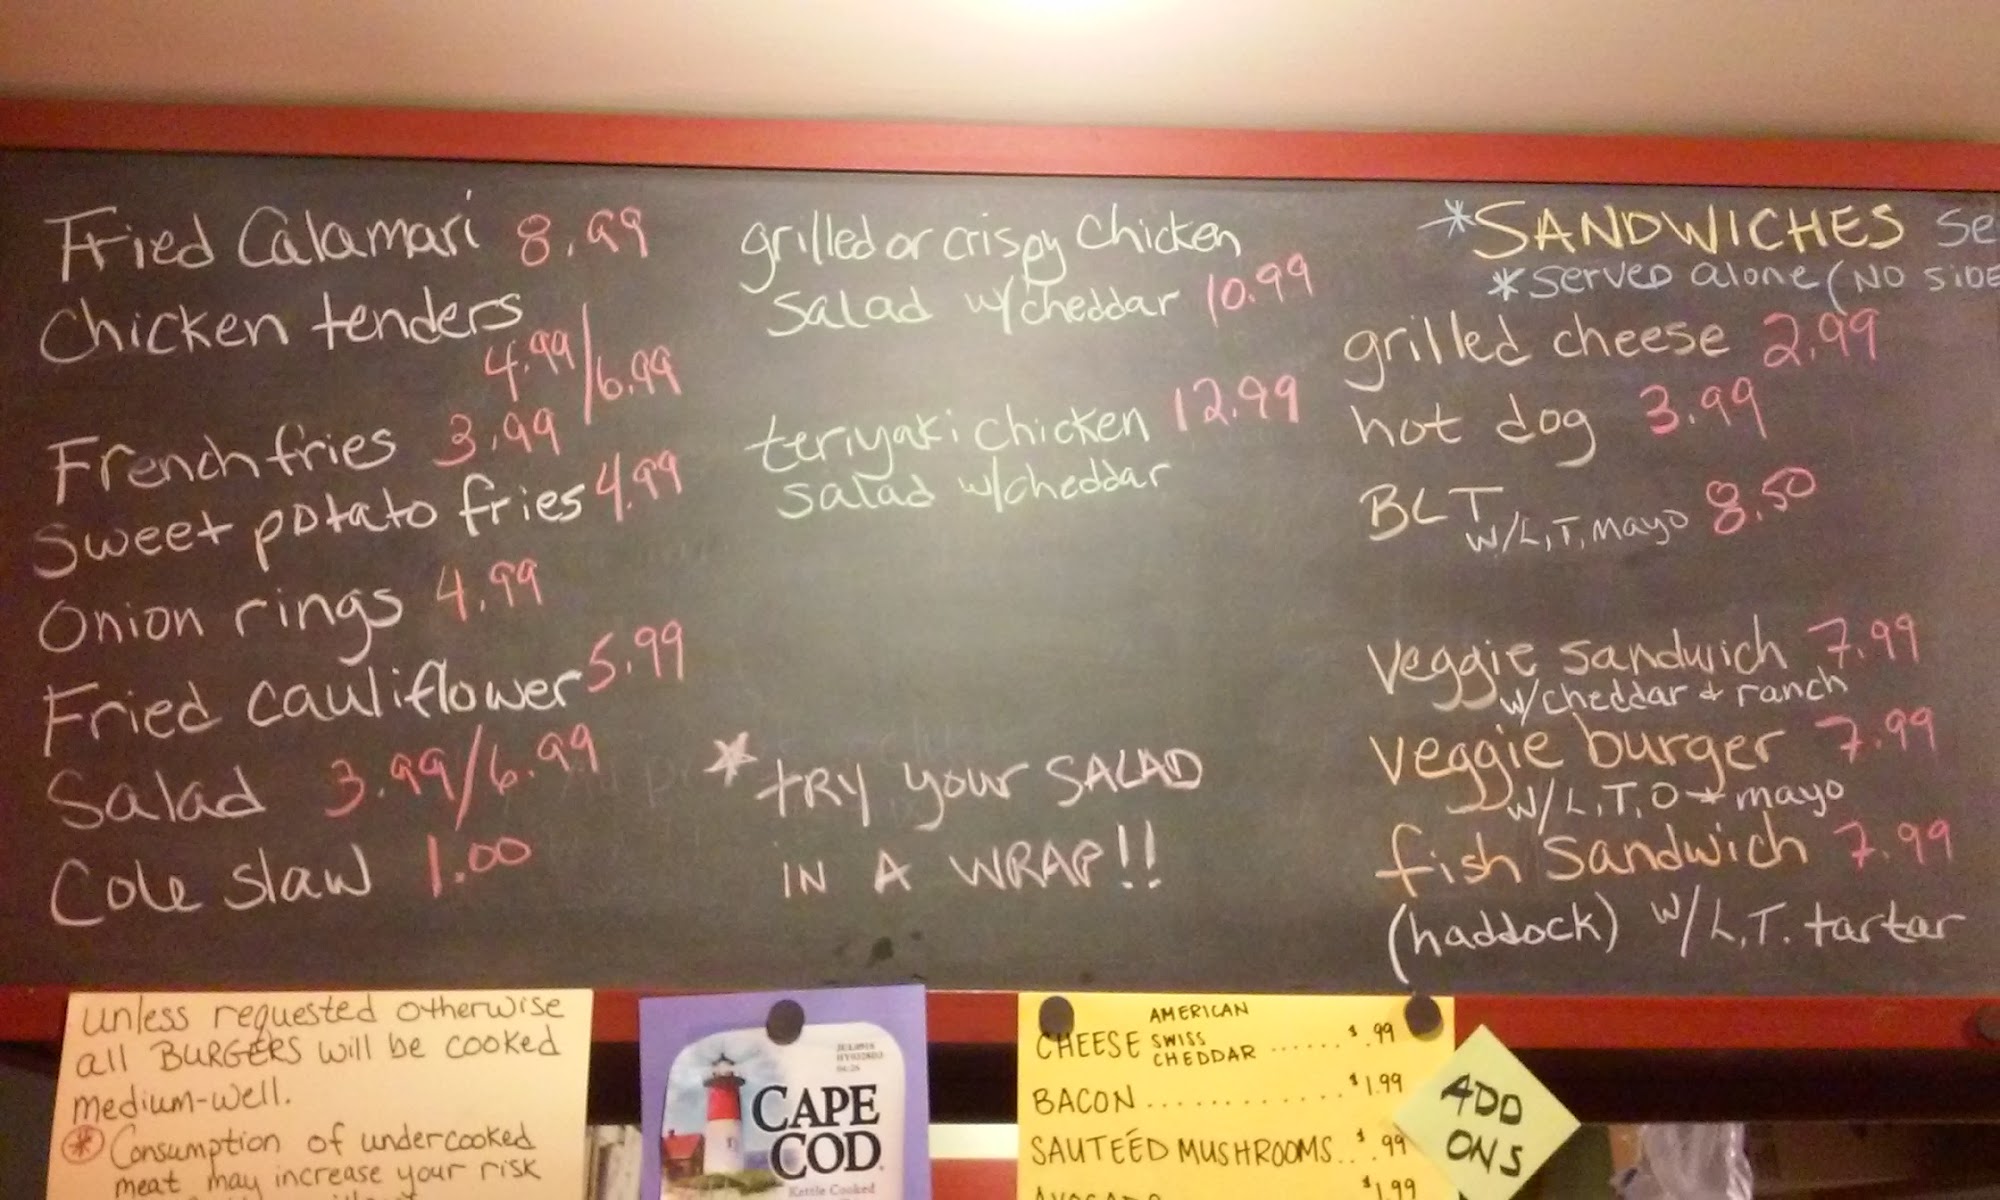 Fried Calamari 8.99
Chicken tenders
4.99/6.99
French fries 3.99
Sweet potato fries 4.99
Onion rings 4.99
Fried cauliflower 5.99
Salad 3.99/6.99
Cole slaw 1.00
grilled or crispy chicken
salad w/cheddar 10.99
teriyaki chicken 12.99
salad w/cheddar
* TRY your SALAD
IN A WRAP!!
*SANDWICHES Se
*Served alone (NO SIDE
grilled cheese 2.99
hot dog 3.99
BLT
w/L,T, mayo 8.50
Veggie sandwich 7.99
w/cheddar + ranch
veggie burger 7.99
w/L,T,O + mayo
fish sandwich 7.99
(haddock) w/L,T. tartar
unless requested otherwise
all BURGERS will be cooked
medium-well.
* Consumption of undercooked
meat may increase your risk
CAPE
COD
Kettle Cooked
AMERICAN
CHEESE SWISS ...... $.99
CHEDDAR
BACON ............ $1.99
SAUTEÉD MUSHROOMS... $.99
AVOCADO $1.99
ADD
ONS